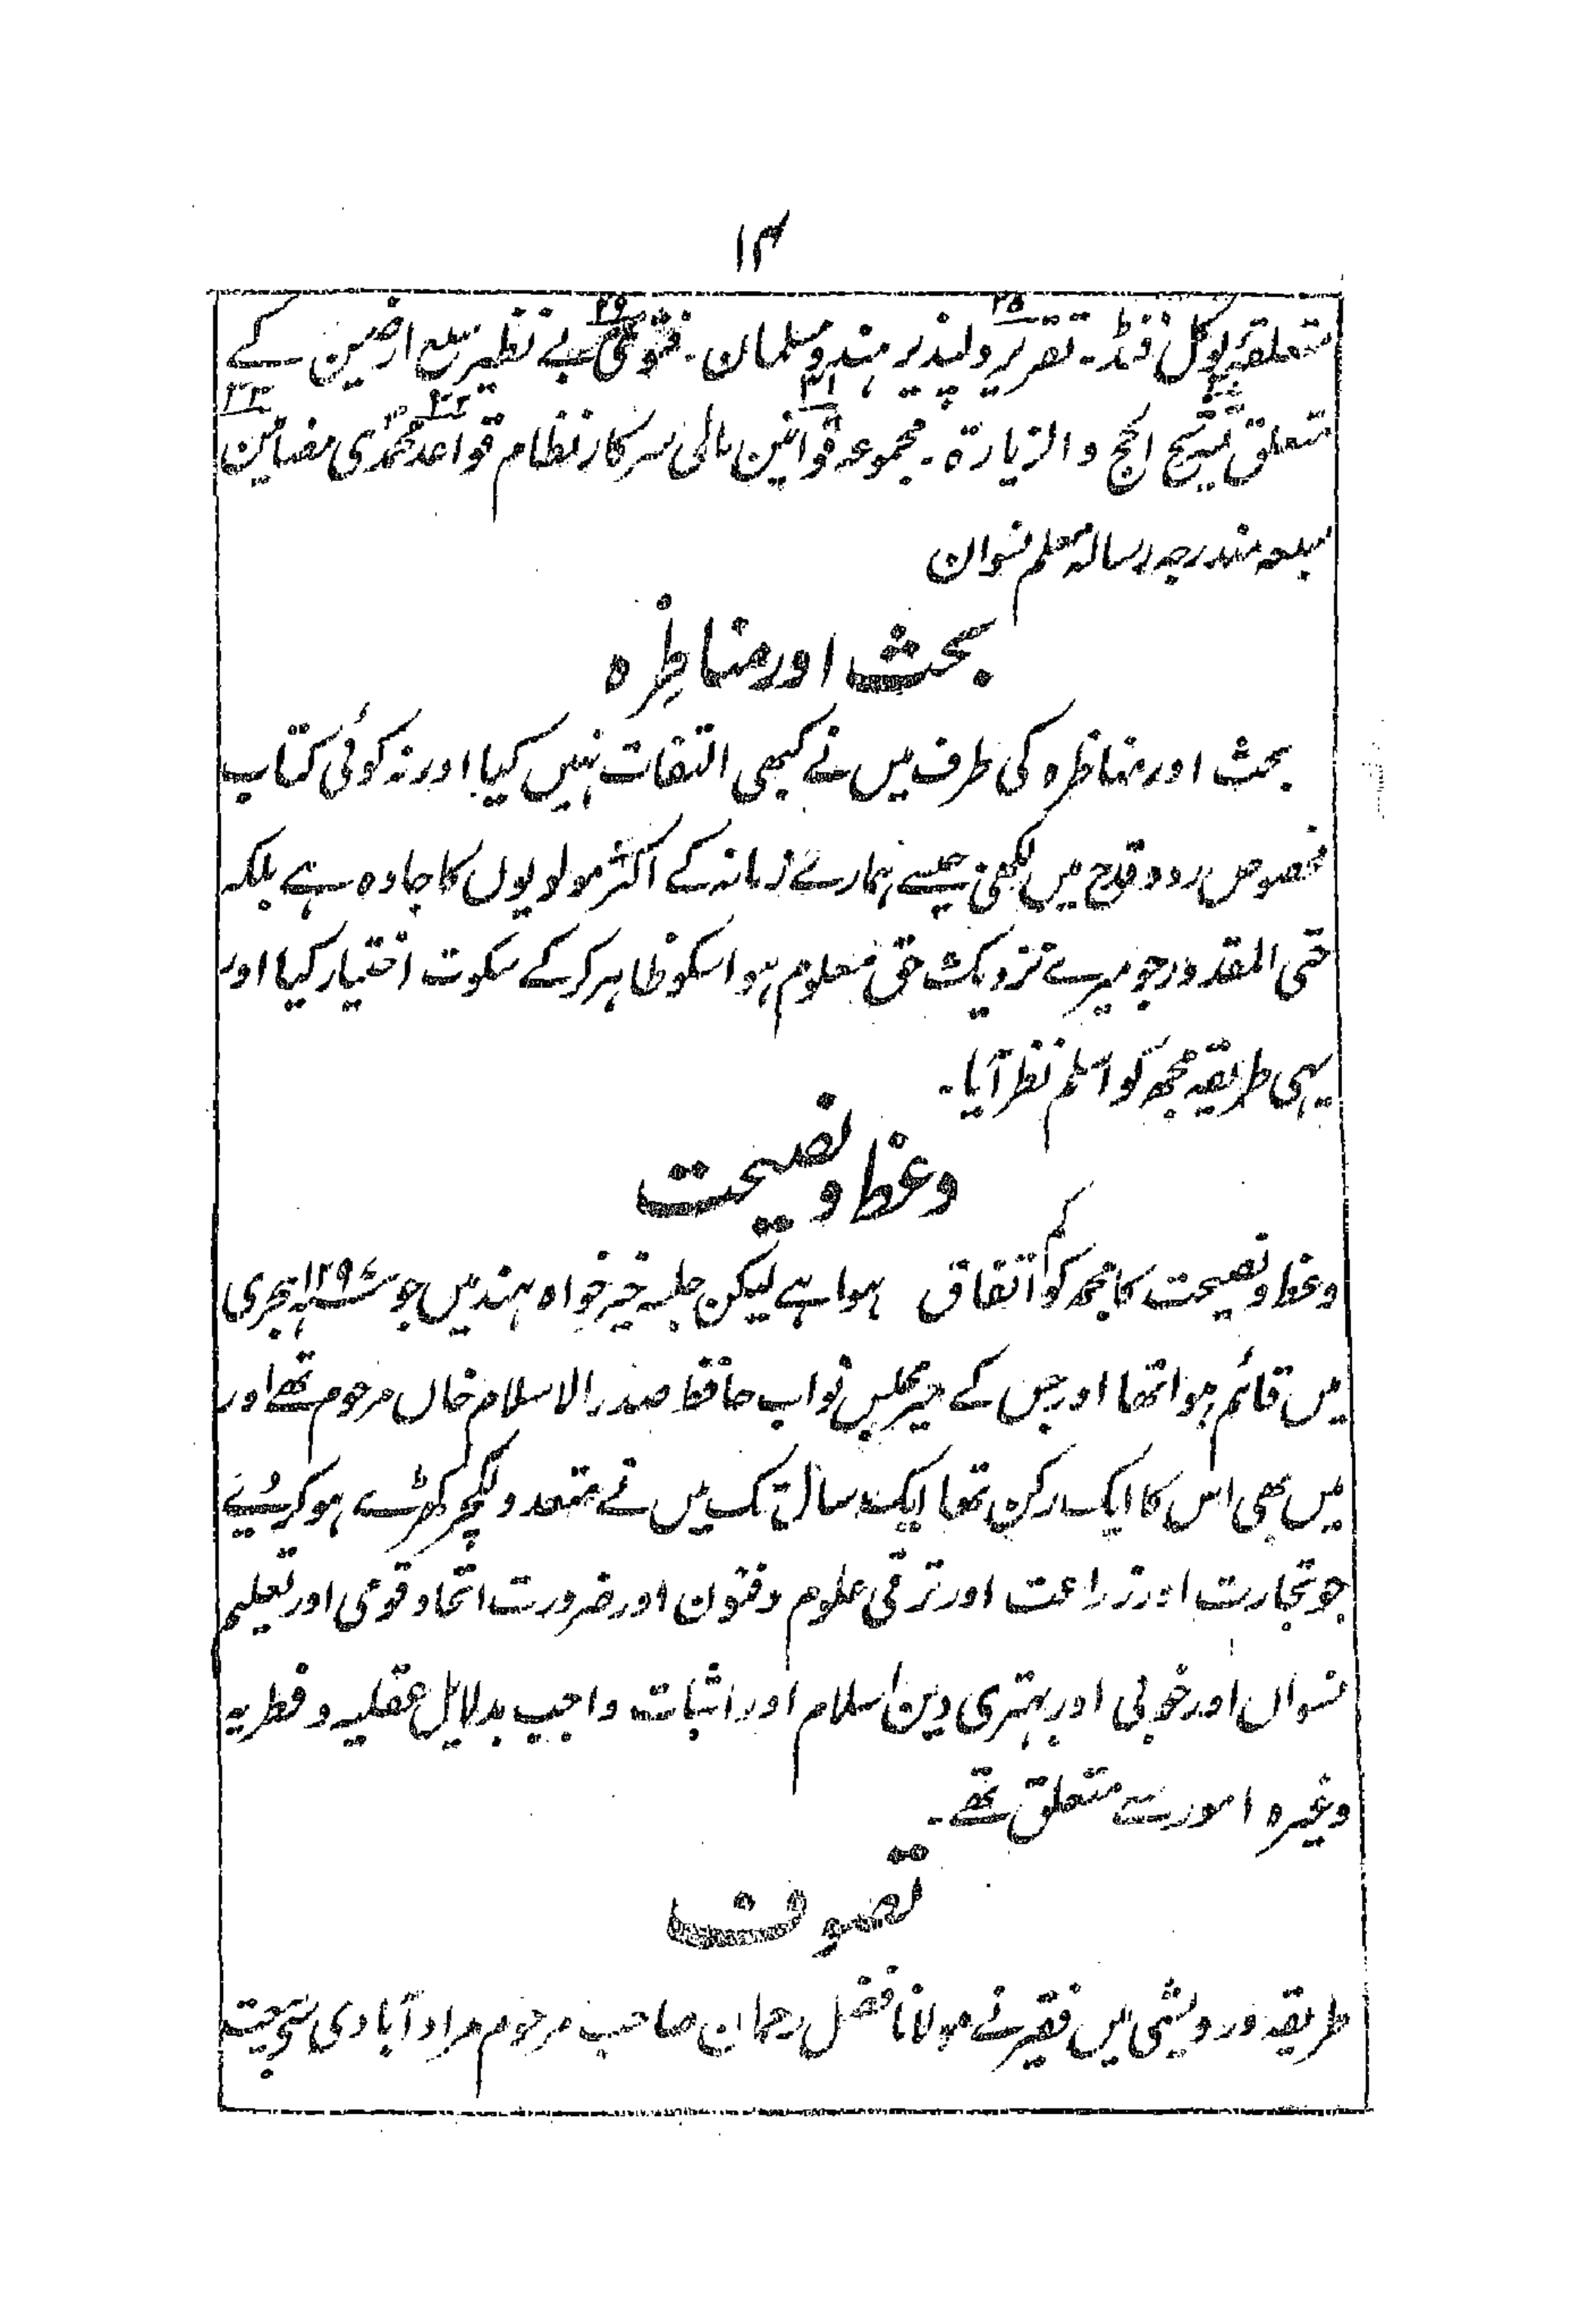 ۱۴
متعلقۂ لوکل فنڈ۔ تقریر دلپذیر ہندو مسلمان۔ فتویٰ بے نظیر سبع ارضین کے
متعلق تشریح الحج والزیارۃ۔ مجموعہ قوانین مالی سرکار نظام قواعد محمدی مضامین
سبعہ مندرجہ رسالہ معلم نسوان
بحث اور مناظِرہ
بحث اور مناظرہ کی طرف میں نے کبھی التفات نہیں کیا اور نہ کوئی کتاب
مخصوص رد و قدح میں لکھی جیسے ہمارے زمانہ کے اکثر مولویوں کا جادہ ہے بلکہ
حتی المقدور جو میرے نزدیک حق معلوم ہوا اسکو ظاہر کرکے سکوت اختیار کیا اور
یہی طریقہ مجھ کو اسلم نظر آیا۔
وعظ و نصیحت
وعظ و نصیحت کا مجھ کو کم اتفاق ہوا ہے لیکن جلسہ خیر خواہ ہند میں جو ہجری
میں قائم ہوا تھا اور جس کے میر مجلس نواب حافظ صدر الاسلام خاں مرحوم تھے اور
میں بھی اس کا ایک رکن تھا ایک سال تک میں نے متعدد لکچر کھڑے ہو کر دیے
جو تجارت اور زراعت اور ترقی علوم و فنون اور ضرورت اتحاد قومی اور تعلیم
نسواں اور خوبی اور بہتری دین اسلام اور اثبات واجب بدلایل عقلیہ و فطریہ
وغیرہ امور سے متعلق تھے۔
تصوف
طریقہ درویشی میں فقیر نے مولانا فضل رحمان صاحب مرحوم مراد آبادی سے بیعت